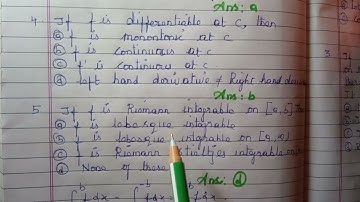 Ans: a
4. If f is differentiable at c, then
ⓐ f is monontonic at c
ⓑ f is continuous at c
ⓒ f' is continuous at c
ⓓ left hand derivative ≠ Right hand
Ans: b
5 If f is Riemann integrable on [a,b]
ⓐ f is lebesgue integrable
ⓑ f is lebesgue integrable on
ⓒ f is Riemann integrable on
ⓓ None of these
Ans: ⓓ
3